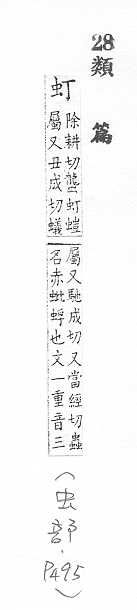 28
類篇
虰
除耕切蠪虰螘
屬又丑成切蟻
屬又馳成切又當經切蟲
名赤蚍蜉也文一重音三
(虫部.P495)